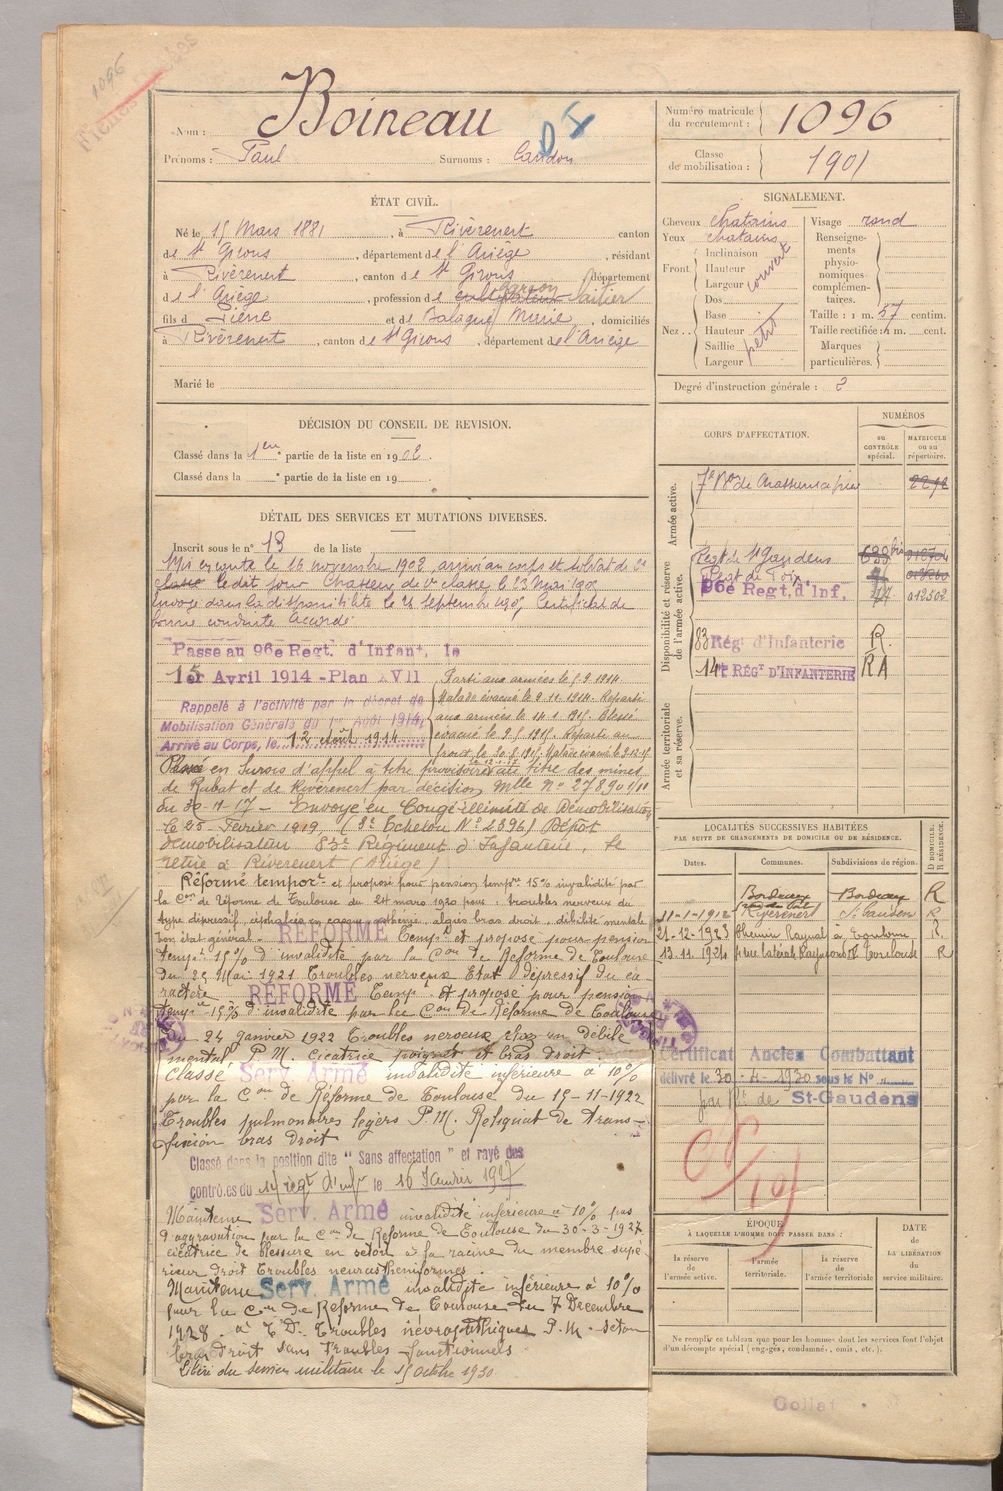 1096
Nom : Boineau
Prénoms : Paul Surnoms : Candon
Numéro matricule du recrutement : 1096
Classe de mobilisation : 1901
ÉTAT CIVIL.
Né le 15 Mars 1881, à Rivèrenert canton
de St Girons, département de l'Ariège, résidant
à Rivèrenert, canton de St Girons, département
de l'Ariège, profession de cultivateur garçon laitier
fils de Pierre et de Balague Marie, domiciliés
à Rivèrenert, canton de St Girons, département de l'Ariège
Marié le
SIGNALEMENT.
Cheveux chatains Visage rond
Yeux chatains Renseignements physionomiques complémentaires.
Front Inclinaison Hauteur Largeur couvert
Nez Dos Base Hauteur Saillie Largeur petit
Taille : 1 m. 57 centim.
Taille rectifiée : 1 m. cent.
Marques particulières.
Degré d'instruction générale : 2
DÉCISION DU CONSEIL DE REVISION.
Classé dans la 1ère partie de la liste en 1902.
Classé dans la partie de la liste en 19
DÉTAIL DES SERVICES ET MUTATIONS DIVERSES.
Inscrit sous le n° 13 de la liste
Mis en route le 16 novembre 1902, arrivé au corps et soldat de 2e
classe le dit jour Chasseur de 1e classe le 23 Mai 190
Envoyé dans la disponibilité le 21 Septembre 190 Certificat de
bonne conduite Accordé
Passé au 96e Regt. d'Infant. le
15er Avril 1914 - Plan XVII
Rappelé à l'activité par le décret de
Mobilisation Générale du 1er Août 1914,
Arrivé au Corps, le 12 août 1914
Parti aux armées le 5.9.1914
Malade évacué le 2.11.1914. Reparti
aux armées le 14.1.1915. Blessé
évacué le 2.5.1915. Reparti au
front le 20.8.1915. Malade évacué le
Passé en Sursis d'appel à titre provisoire au titre des mines
de Rubat et de Riverenert par décision Mlle No 27890
du 30-11-17 - Envoyé en Congé illimité de Démobilisation
le 25 Février 1919, (3e Echelon No 2396) Dépôt
démobilisateur 83e Régiment d'Infanterie, Se
retire à Riverenert (Ariège)
Réformé tempore et proposé pour pension tempre 15% invalidité par
la Con de réforme de Toulouse du 24 mars 1920 pour : troubles nerveux du
type dépressif, céphalées en casque, asthénie, algies bras droit, débilité mentale
bon état général. - RÉFORMÉ Tempre et proposé pour pension
tempre 15% d'invalidité par la Con de Réforme de Toulouse
du 25 Mai 1921 Troubles nerveux Etat dépressif du ca-
ractère RÉFORMÉ Tempre et proposé pour pension
tempre 15% d'invalidité par la Con de Réforme de Toulouse
du 24 Janvier 1922 Troubles nerveux chez un débile
mental P.M. Cicatrice poignet et bras droit.
Classé Serv. Armé invalidité inférieure à 10%
par la Con de Réforme de Toulouse du 15-11-1922
Troubles pulmonaires légers P.M. Reliquat de trans-
fixion bras droit
Classé dans la position dite "Sans affectation" et rayé des
contrôles du 14e Régt d'Inf le 16 Janvier 1927
Maintenu Serv. Armé invalidité inférieure à 10% pas
d'aggravation par la Con de Réforme de Toulouse du 30-3-1927
cicatrice de blessure en séton à la racine du membre supé-
rieur droit Troubles neurastheniformes.
Maintenu Serv. Armé invalidité inférieure à 10%
pour la Con de Réforme de Toulouse du 7 Decembre
1928. à T.D. Troubles névropathiques P.M. séton
bras droit sans troubles fonctionnels
Libéré du service militaire le 15 octobre 1930
CORPS D'AFFECTATION.
NUMÉROS
au CONTRÔLE spécial. MATRICULE ou au répertoire.
Armée active.
7e Bon de Chasseurs à pied 2292
Disponibilité et réserve de l'armée active.
Regt de St Gaudens
Regt de Foix
96e Regt. d'Inf. 012502
83 Rég. d'Infanterie R.
14e RÉGT D'INFANTERIE RA
Armée territoriale et sa réserve.
LOCALITÉS SUCCESSIVES HABITÉES
PAR SUITE DE CHANGEMENTS DE DOMICILE OU DE RÉSIDENCE.
Dates. Communes. Subdivisions de région. D DOMICILE. R RÉSIDENCE.
Bordeaux Bordeaux R
11-1-1912 Riverenert St Gaudens R
21-12-1923 Chemin Raynal à Toulouse R.
13.11.1924 Toulouse R
Certificat Ancien Combattant
délivré le 30-4-1930 sous le N°
St-Gaudens
ÉPOQUE
À LAQUELLE L'HOMME DOIT PASSER DANS :
la réserve de l'armée active. l'armée territoriale. la réserve de l'armée territoriale
DATE de LA LIBÉRATION du service militaire.
Ne remplir ce tableau que pour les hommes dont les services font l'objet
d'un décompte spécial (engagés, condamnés, omis, etc.).